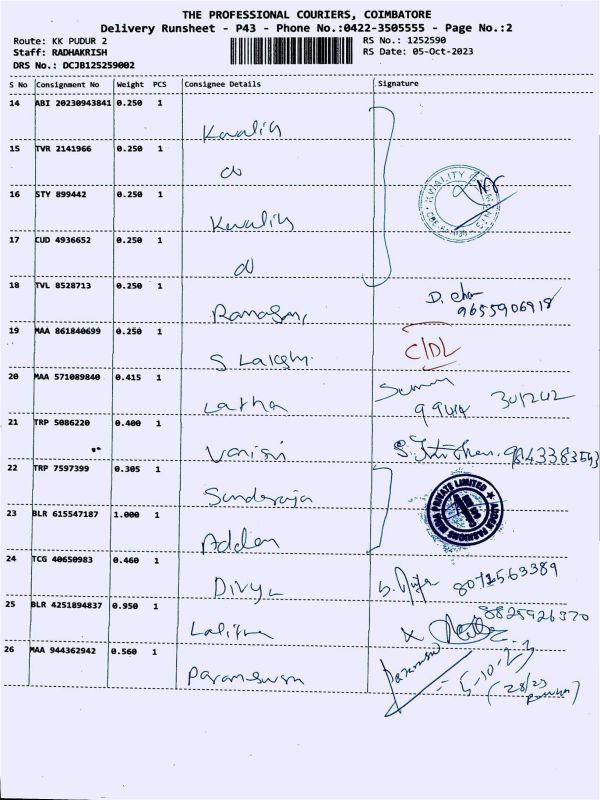 THE PROFESSIONAL COURIERS, COIMBATORE
Delivery Runsheet - P43 - Phone No.:0422-3505555 - Page No.:2
Route: KK PUDUR 2 RS No.: 1252590
Staff: RADHAKRISH RS Date: 05-Oct-2023
DRS No.: DCJB125259002
S No Consignment No Weight PCS Consignee Details Signature
14 ABI 20230943841 0.250 1
Kwality
15 TVR 2141966 0.250 1
16 STY 899442 0.250 1
Kwality
17 CUD 4936652 0.250 1
18 TVL 8528713 0.250 1
D. 9655906918
19 MAA 861840699 0.250 1
S Lakshmi C/DL
20 MAA 571089840 0.415 1
Latha
21 TRP 5086220 0.400 1
9843383593
22 TRP 7597399 0.305 1
Sunderaja
23 BLR 615547187 1.000 1
Adden ADDEN FASHIONS INDIA PRIVATE LIMITED
24 TCG 40650983 0.460 1
Divya
25 BLR 4251894837 0.950 1 8825926370
Lalitha
26 MAA 944362942 0.560 1
Parameswran 5-10-23